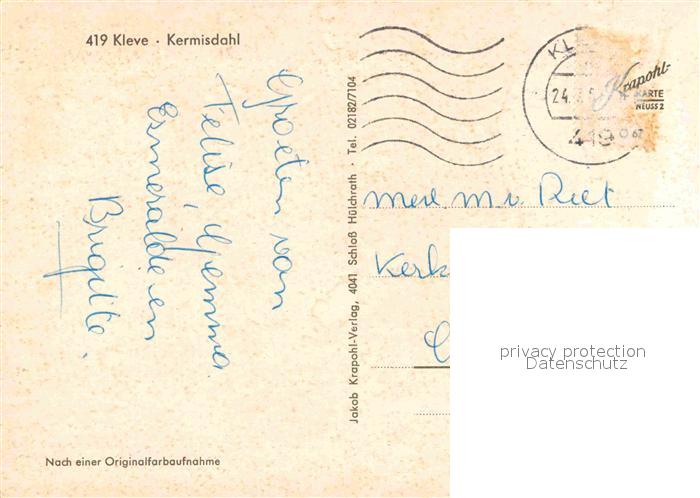 419 Kleve · Kermisdahl
Groeten van
Felise,
Esmeralde en
Brigitte.
Nach einer Originalfarbaufnahme
Jakob Krapohl-Verlag, 4041 Schloß Hülchrath · Tel. 02182/7104
KL
24.
419
Krapohl-
KARTE
NEUSS 2
Mevr. M. v. Riet
Kerk
privacy protection
Datenschutz